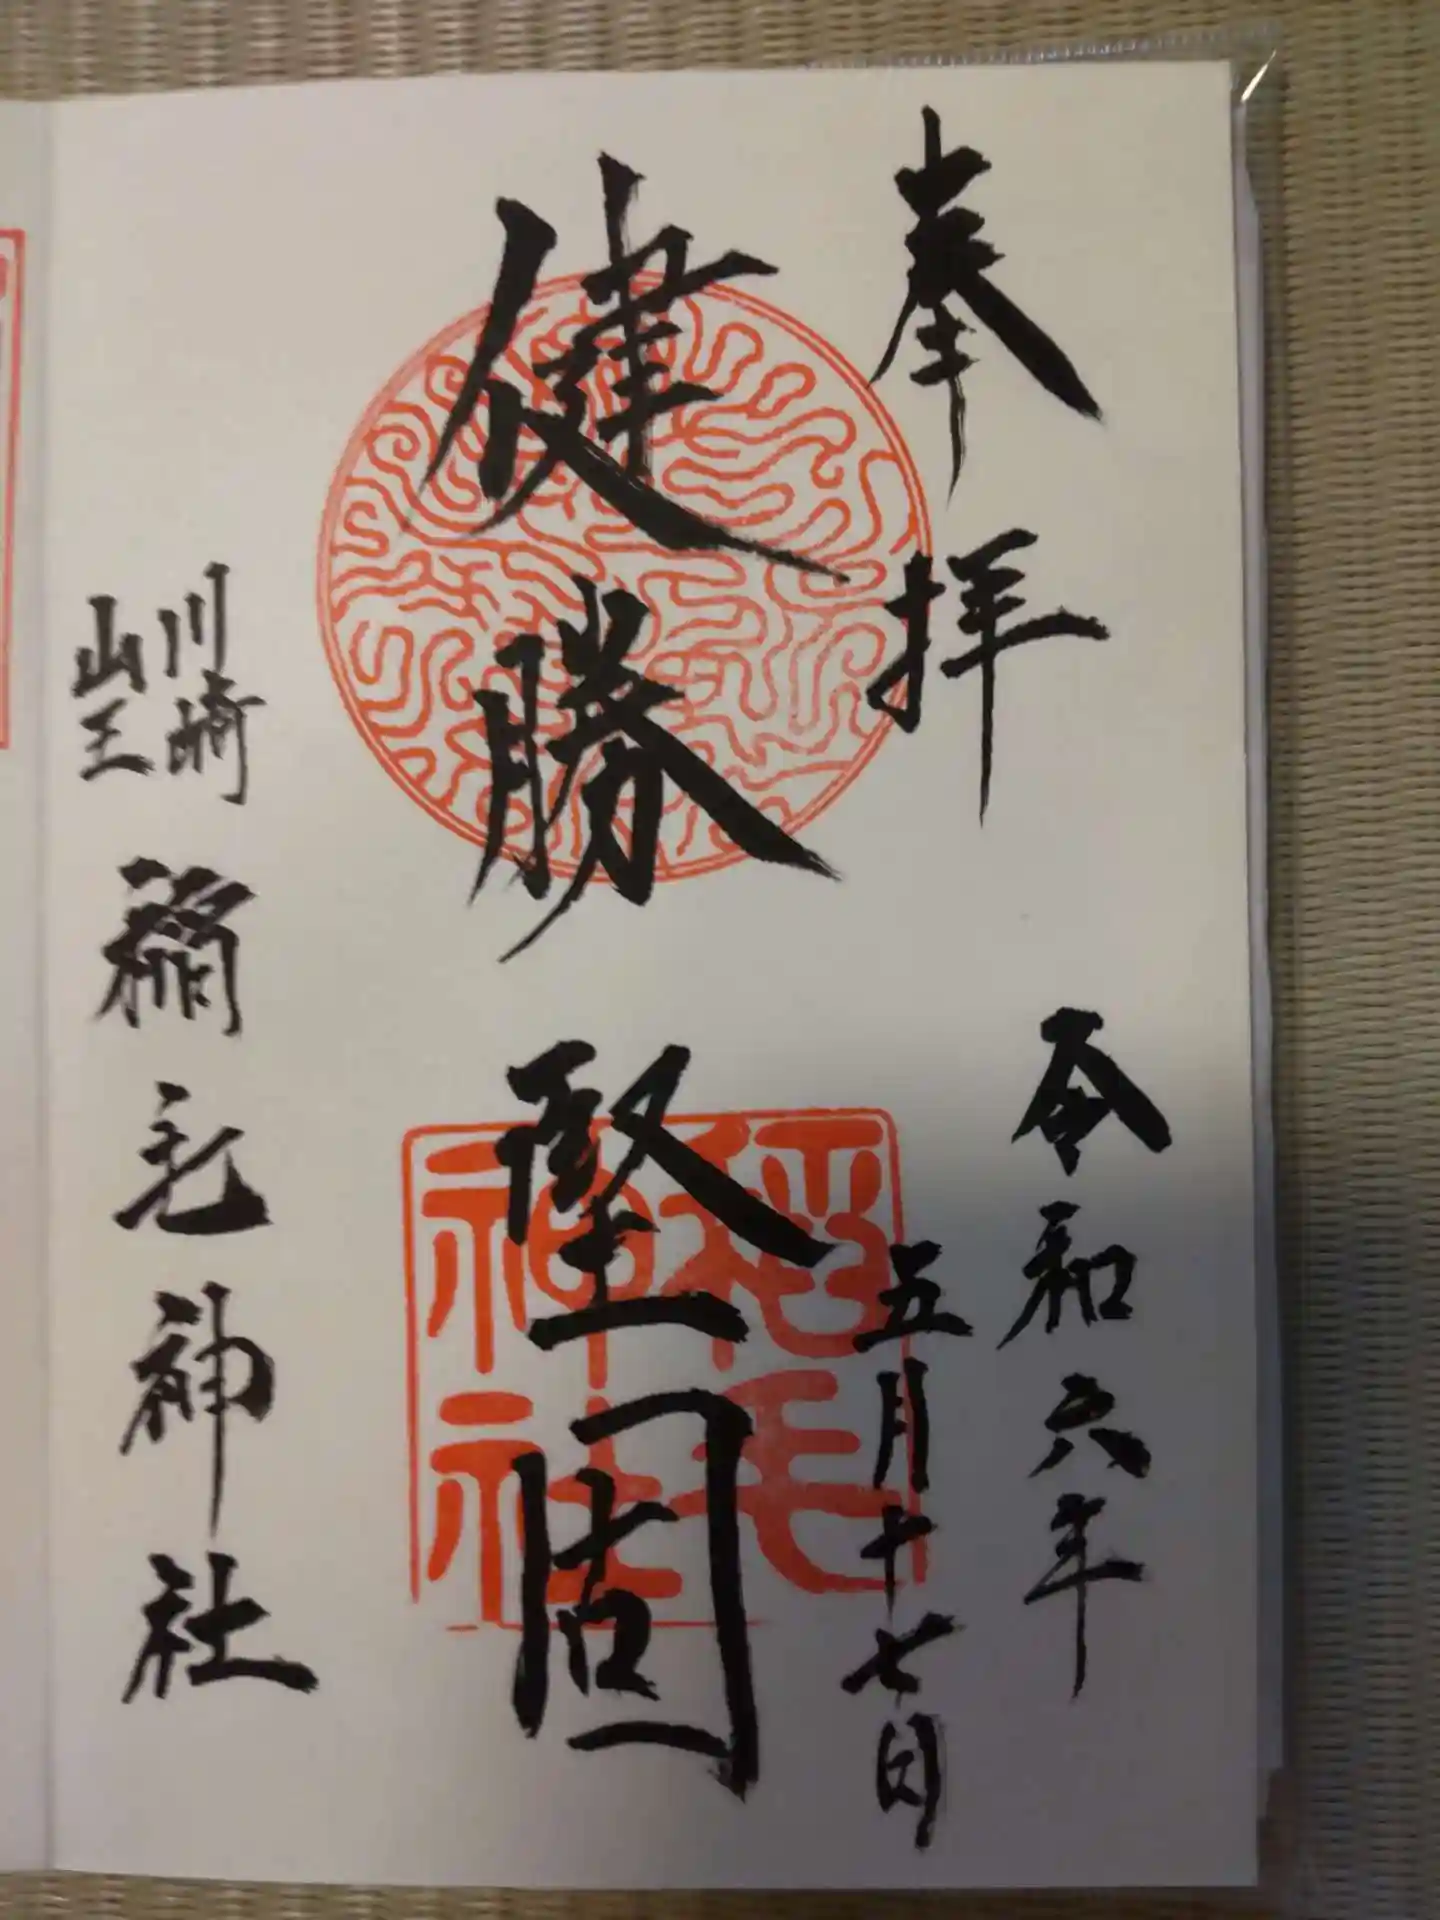 奉拝
令和六年
五月十七日
健勝堅固
川崎
山王
稲毛神社
稲毛
神社